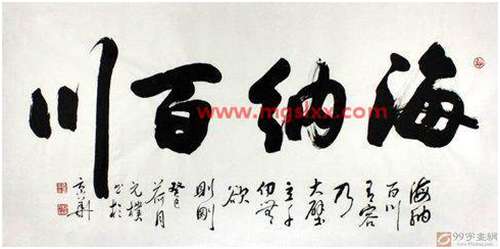 海纳百川
www.mgslxx.com
海纳
百川
有容
乃
大壁
立千
仞无
欲
则刚
癸巳
荷月
元朴
书于
京华
99字画网